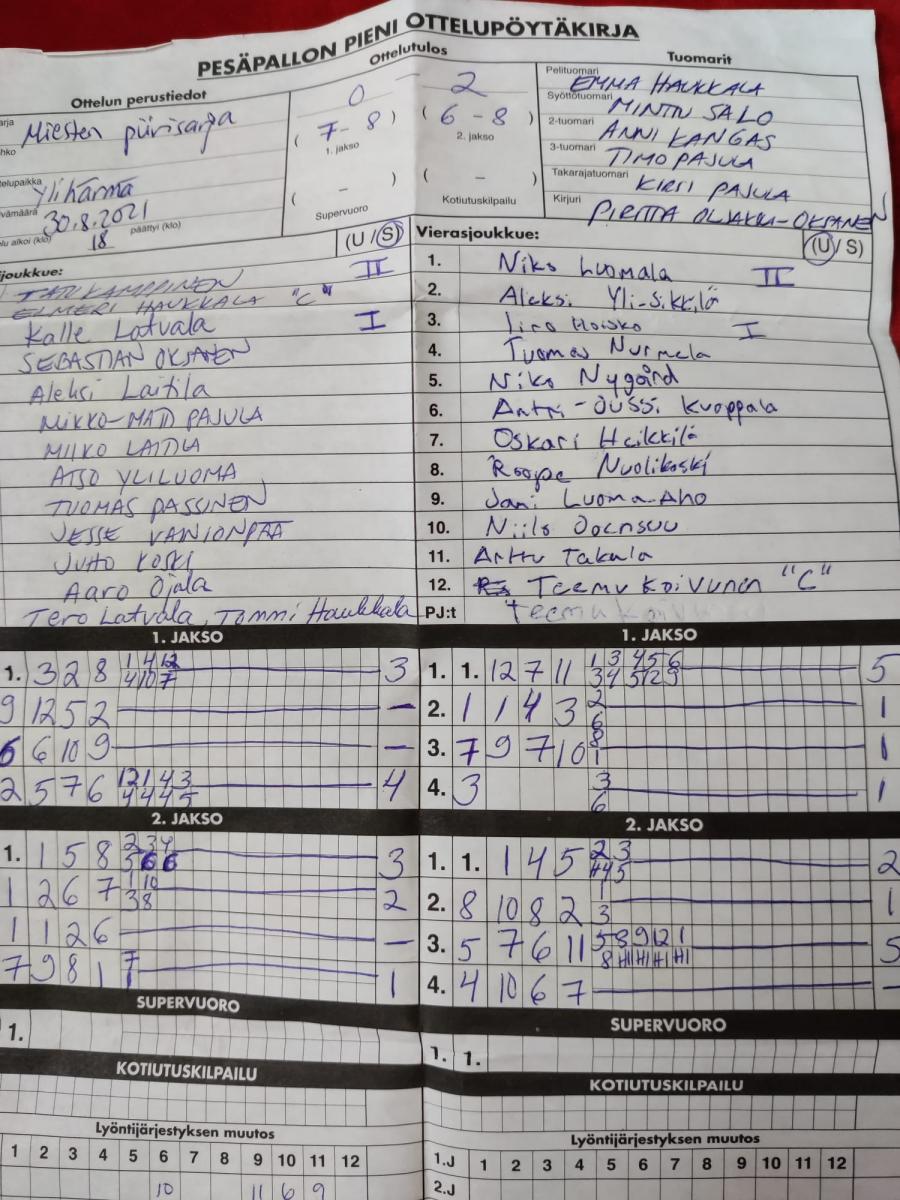 PESÄPALLON PIENI OTTELUPÖYTÄKIRJA
Ottelun perustiedot
Miesten piirisarja
Ylihärmä
30.8.2021
18 päättyi (klo)
Ottelutulos
0 - 2
(7-8) (6-8)
1. jakso 2. jakso
( - ) ( - )
Supervuoro Kotiutuskilpailu
Tuomarit
Pelituomari EMMA HAUKKALA
Syöttötuomari MINTTU SALO
2-tuomari ANNI KANGAS
3-tuomari TIMO PAJULA
Takarajatuomari KIRSI PAJULA
Kirjuri PIRITTA OKSANEN
joukkue: (U/S)
TATU KAMPPINEN II
ELMERI HAUKKALA "C"
Kalle Latvala I
SEBASTIAN OKSANEN
Aleksi Laitila
MIKKO-MATTI PAJULA
MILKO LAITILA
ATSO YLILUOMA
TUOMAS PASSINEN
JESSE VAINIONPÄÄ
JUHO KOSKI
Aaro Ojala
Tero Latvala, Tommi Haukkala
Vierasjoukkue: (U/S)
1. Niko Luomala II
2. Aleksi Yli-Sikkilä
3. Iiro Hoisko I
4. Tuomas Nurmela
5. Niko Nygård
6. Antti-Jussi Kuoppala
7. Oskari Heikkilä
8. Roope Nuolikoski
9. Jani Luoma-Aho
10. Niilo Joensuu
11. Arttu Takala
12. Teemu Koivunen "C"
PJ:t Teemu
1. JAKSO
1. 3 2 8 1 4 12 3
4 10 7
9 12 5 2 –
6 6 10 9 –
2 5 7 6 12 1 4 3 4
4 4 4 5
1. JAKSO
1. 1. 12 7 11 1 3 4 5 6 5
3 4 5 12 9
2. 1 1 4 3 2 1
6
3. 7 9 7 10 8 1
1
4. 3 3 1
6
2. JAKSO
1. 1 5 8 2 3 4 3
5 6 6
1 2 6 7 1 10 2
3 8
1 1 2 6 –
7 9 8 1 7 1
1
2. JAKSO
1. 1. 1 4 5 2 3 2
4 5
2. 8 10 8 2 1 1
3
3. 5 7 6 11 5 8 9 12 1 5
8 H1 H1 H1 H1
4. 4 10 6 7 –
SUPERVUORO
1.
SUPERVUORO
1. 1.
KOTIUTUSKILPAILU
KOTIUTUSKILPAILU
Lyöntijärjestyksen muutos
1 2 3 4 5 6 7 8 9 10 11 12
10 11 6 9
Lyöntijärjestyksen muutos
1.J 1 2 3 4 5 6 7 8 9 10 11 12
2.J